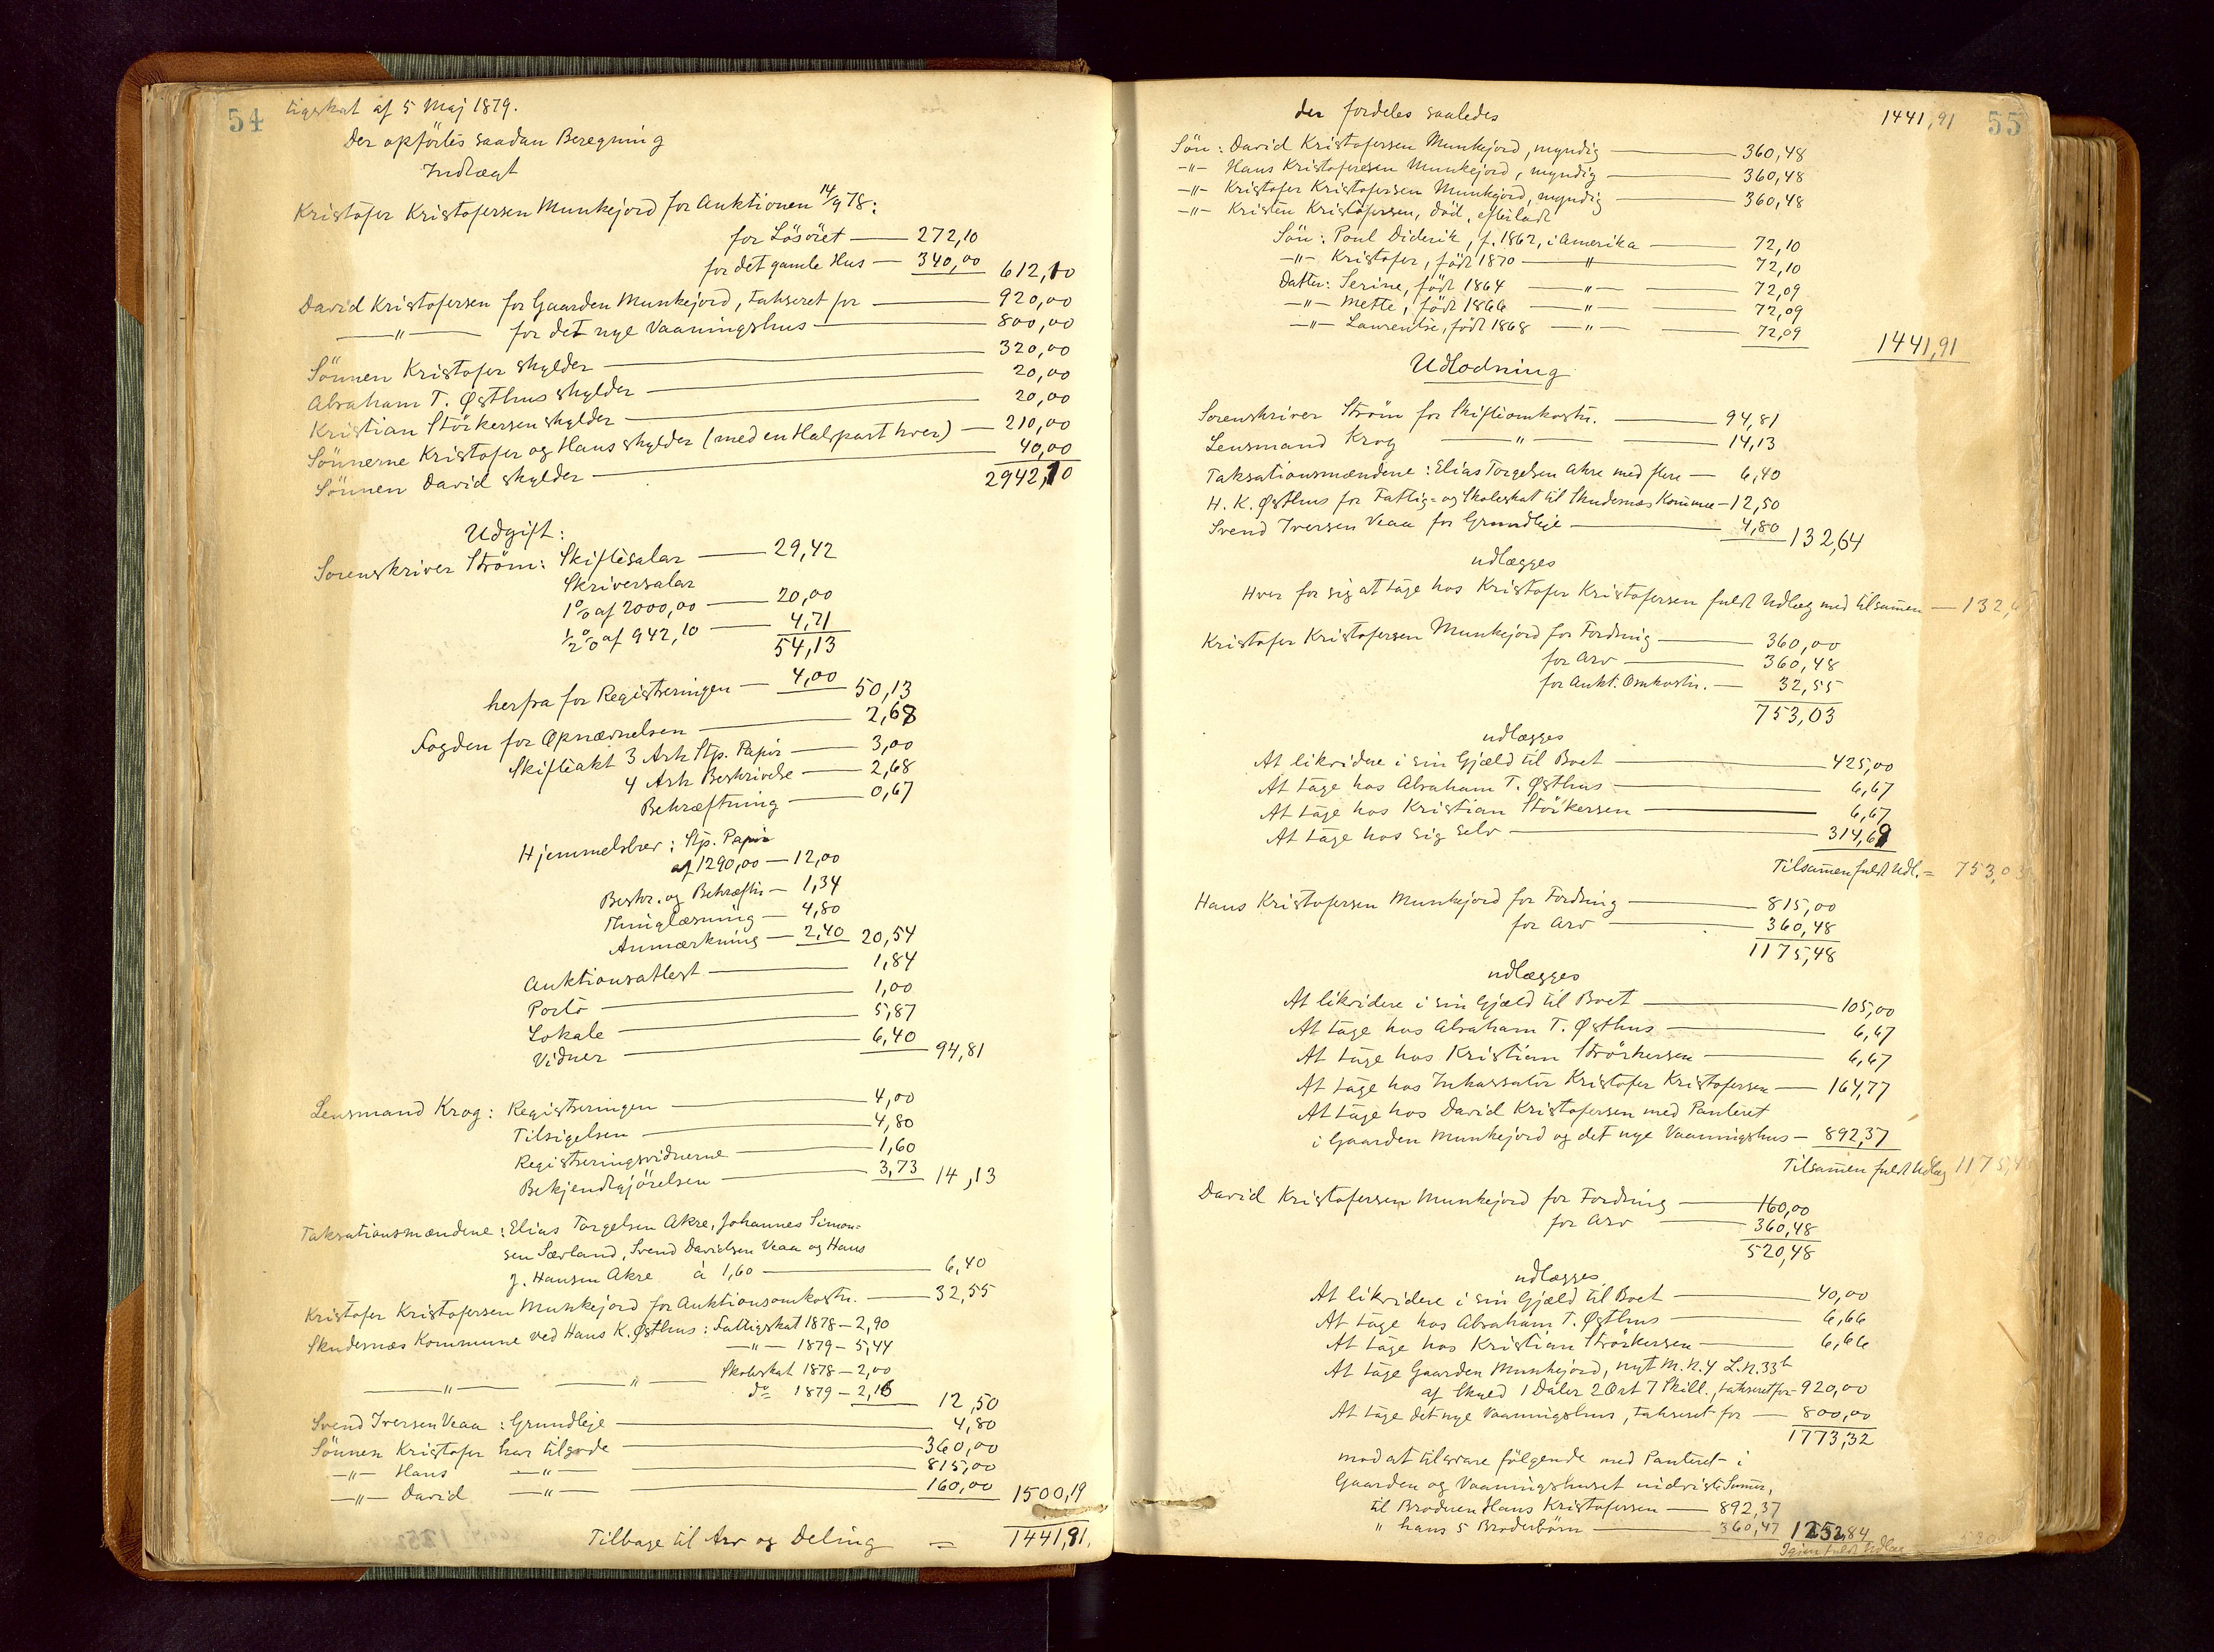 54
tigskat af 5 Maj 1879.
Der opførtes saadan Beregning
Indtægt
Kristofer Kristofersen Munkejord for Auktionen 14/9 78:
for Løsøret — 272,10
for det gamle Hus — 340,00 612,10
David Kristofersen for Gaarden Munkejord, takseret for — 920,00
—"— for det nye Vaaningshus — 800,00
Sønnen Kristofer skylder — 320,00
Abraham T. Østhus skylder — 20,00
Kristian Störkersen skylder — 20,00
Sønnerne Kristofer og Hans skylder (med en Halvpart hver) — 210,00
Sønnen David skylder — 40,00
2942,10
Udgift:
Sorenskriver Strøm: Skiftesalar — 29,42
Skriversalar
1% af 2000,00 — 20,00
½% af 942,10 — 4,71
54,13
herfra for Registreringen — 4,00 50,13
Fogden for Opnævnelsen — 2,68
Skifteakt 3 Ark Stp. Papir — 3,00
4 Ark Beskrivelse — 2,68
Bekræftning — 0,67
Hjemmelsbrev: Stp. Papir
af 1290,00 — 12,00
Beskr. og Bekræftn — 1,34
Thinglæsning — 4,80
Anmærkning — 2,40 20,54
Auktionsattest — 1,84
Porto — 1,00
Lokale — 5,87
Vidner — 6,40 94,81
Lensmand Krog: Registreringen — 4,00
Tilsigelsen — 4,80
Registreringsvidnerne — 1,60
Bekjendtgjørelsen — 3,73 14,13
Taksationsmændene: Elias Torgelsen Akre, Johannes Simon=
sen Sævland, Svend Davidsen Veaa og Hans
J. Hansen Akre à 1,60 — 6,40
Kristofer Kristofersen Munkejord for Auktionsomkostn. — 32,55
Skudesnæs Kommune ved Hans K. Østhus: Fattigskat 1878 — 2,90
—"— 1879 — 5,44
—"— —"— Skoleskat 1878 — 2,00
do 1879 — 2,16 12,50
Svend Iversen Veaa: Grundleje — 4,80
Sønnen Kristofer har tilgode — 360,00
—"— Hans —"— — 815,00
—"— David —"— — 160,00 1500,19
Tilbage til Arv og Deling = 1441,91.
55
der fordeles saaledes 1441,91
Søn: David Kristofersen Munkejord, myndig — 360,48
—"— Hans Kristofersen Munkejord, myndig — 360,48
—"— Kristofer Kristofersen Munkejord, myndig — 360,48
—"— Kristen Kristofersen, död, efterladt
Søn: Poul Diderik, f. 1862, i Amerika — 72,10
—"— Kristofer, født 1870 —"— 72,10
Datter: Serine, født 1864 —"— — 72,09
—"— Mette, født 1866 —"— — 72,09
—"— Laurentse, født 1868 —"— — 72,09
1441,91
Udlodning
Sorenskriver Strøm for Skifteomkostn. — 94,81
Lensmand Krog —"— — 14,13
Taksationsmændene: Elias Torgelsen Akre med flere — 6,40
H. K. Østhus for Fattig= og Skoleskat til Skudesnæs Kommune — 12,50
Svend Iversen Veaa for Grundleje — 4,80 132,64
udlægges
Hver for sig at tage hos Kristofer Kristofersen fuldt Udlæg med tilsammen — 132,6
Kristofer Kristofersen Munkejord for Fordring — 360,00
for Arv — 360,48
for Aukt. Omkostn. — 32,55
753,03
udlægges
At likvidere i sin Gjæld til Boet — 425,00
At tage hos Abraham T. Østhus — 6,67
At tage hos Kristian Störkersen — 6,67
At tage hos sig selv — 314,69
Tilsammen fuldt Udl. = 753,03
Hans Kristofersen Munkejord for Fordring — 815,00
for Arv — 360,48
1175,48
udlægges
At likvidere i sin Gjæld til Boet — 105,00
At tage hos Abraham T. Østhus — 6,67
At tage hos Kristian Störkersen — 6,67
At tage hos Inkassator Kristofer Kristofersen — 164,77
At tage hos David Kristofersen med Panteret
i Gaarden Munkejord og det nye Vaaningshus — 892,37
Tilsammen fuldt Udlæg 1175,4
David Kristofersen Munkejord for Fordring — 160,00
for Arv — 360,48
520,48
udlægges
At likvidere i sin Gjæld til Boet — 40,00
At tage hos Abraham T. Østhus — 6,66
At tage hos Kristian Störkersen — 6,66
At tage Gaarden Munkejord, nyt M.N. 4 L.N. 33b
af Skyld 1 Daler 2 Ort 7 Skill., takseret for 920,00
At tage det nye Vaaningshus, takseret for — 800,00
1773,32
mod at tilsvare følgende med Panteret i
Gaarden og Vaaningshuset utvistede Summer,
til Broderen Hans Kristofersen — 892,37
" hans 5 Broderbørn — 360,47 1252,84
Igjen fuldt Udlæg